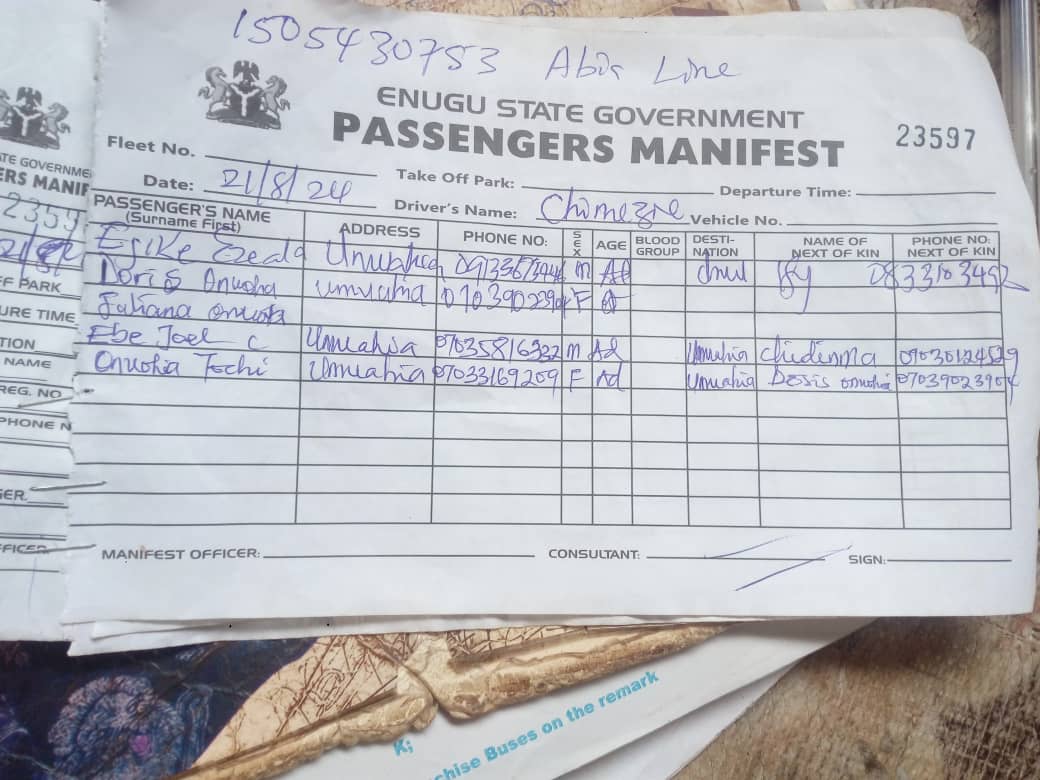 1505430753 Abia Line
ENUGU STATE GOVERNMENT
PASSENGERS MANIFEST
23597
Fleet No.
Take Off Park:
Departure Time:
Date: 21/8/24
Driver's Name: Chimezie
Vehicle No.
PASSENGER'S NAME (Surname First) ADDRESS PHONE NO: SEX AGE BLOOD GROUP DESTI-NATION NAME OF NEXT OF KIN PHONE NO: NEXT OF KIN
Umuahia M Ad
Doris Onuoha Umuahia F
Juliana Onuoha
Ebe Joel C Umuahia 07035816322 M Ad Umuahia Chidinma
Onuoha Tochi Umuahia 07033169209 F Ad Umuahia Doris Onuoha 07039023904
MANIFEST OFFICER:
CONSULTANT:
SIGN:
TE GOVERNME
ERS MANIF
2359
FF PARK
URE TIME
TION
NAME
REG. NO
PHONE N
GER
FFICER
K;
chise Buses on the remark